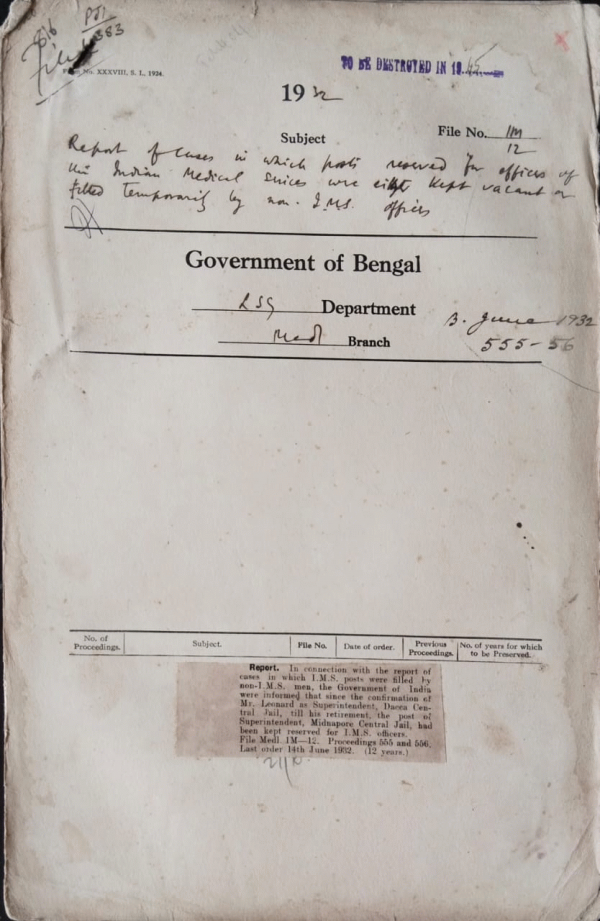 816 PJI
File 383
Form No. XXXVIII, S. I., 1924.
TO BE DESTROYED IN 1945
1932
Subject
File No. 1M
12
Report of Cases in which posts reserved for officers of
the Indian Medical Services were either kept vacant or
filled temporarily by non-I.M.S. officers
Government of Bengal
LSG Department
Medl Branch
B. June 1932
555-56
No. of Proceedings. Subject. File No. Date of order. Previous Proceedings. No. of years for which to be Preserved.
Report. In connection with the report of
cases in which I.M.S. posts were filled by
non-I.M.S. men, the Government of India
were informed that since the confirmation of
Mr. Leonard as Superintendent, Dacca Cen-
tral Jail, till his retirement, the post of
Superintendent, Midnapore Central Jail, had
been kept reserved for I.M.S. officers.
File Medl. 1M—12. Proceedings 555 and 556.
Last order 14th June 1932. (12 years.)